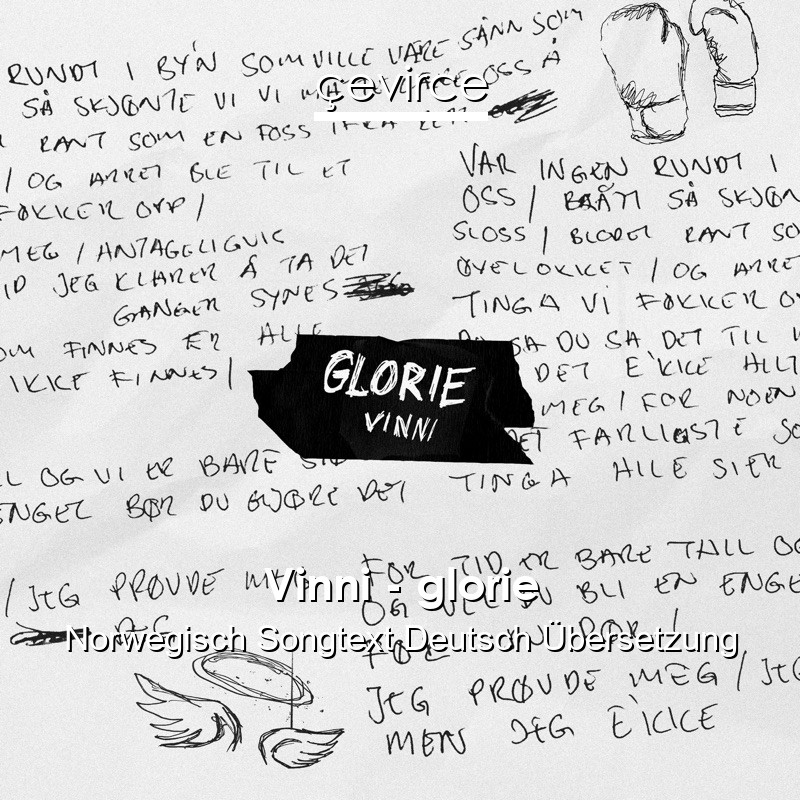 RUNDT I BY'N SOM VILLE VÆRE SÅNN SOM
SÅ SKJØNTE VI VI OSS Å
RANT SOM EN FOSS IFRA
/ OG ARRET BLE TIL ET
FØKKER OPP /
MEG / ANTAGELIGVIS
JEG KLARER Å TA DET
GANGER SYNES
OM FINNES ER ALLE
IKKE FINNES /
çevirce
VAR INGEN RUNDT I
OSS / BRÅTT SÅ SKJØN
SLOSS / BLODET RANT SO
ØYELOKKET / OG ARRE
TINGA VI FØKKER O
SA DU SA DET TIL M
DET E'KKE ALLT
MEG / FOR NOEN
DET FARLIGSTE SO
TINGA ALLE SIER
GLORIE
VINNI
LL OG VI ER BARE
ENGEL BØR DU GJØRE DET
/ JEG PRØVDE MEG
JEG
FOR TID ER BARE TALL OG
OG VIL DU BLI EN ENGE
FØR DØR /
JEG PRØVDE MEG / JEG
MEN JEG E'KKE
Vinni - glorie
Norwegisch Songtext Deutsch Übersetzung